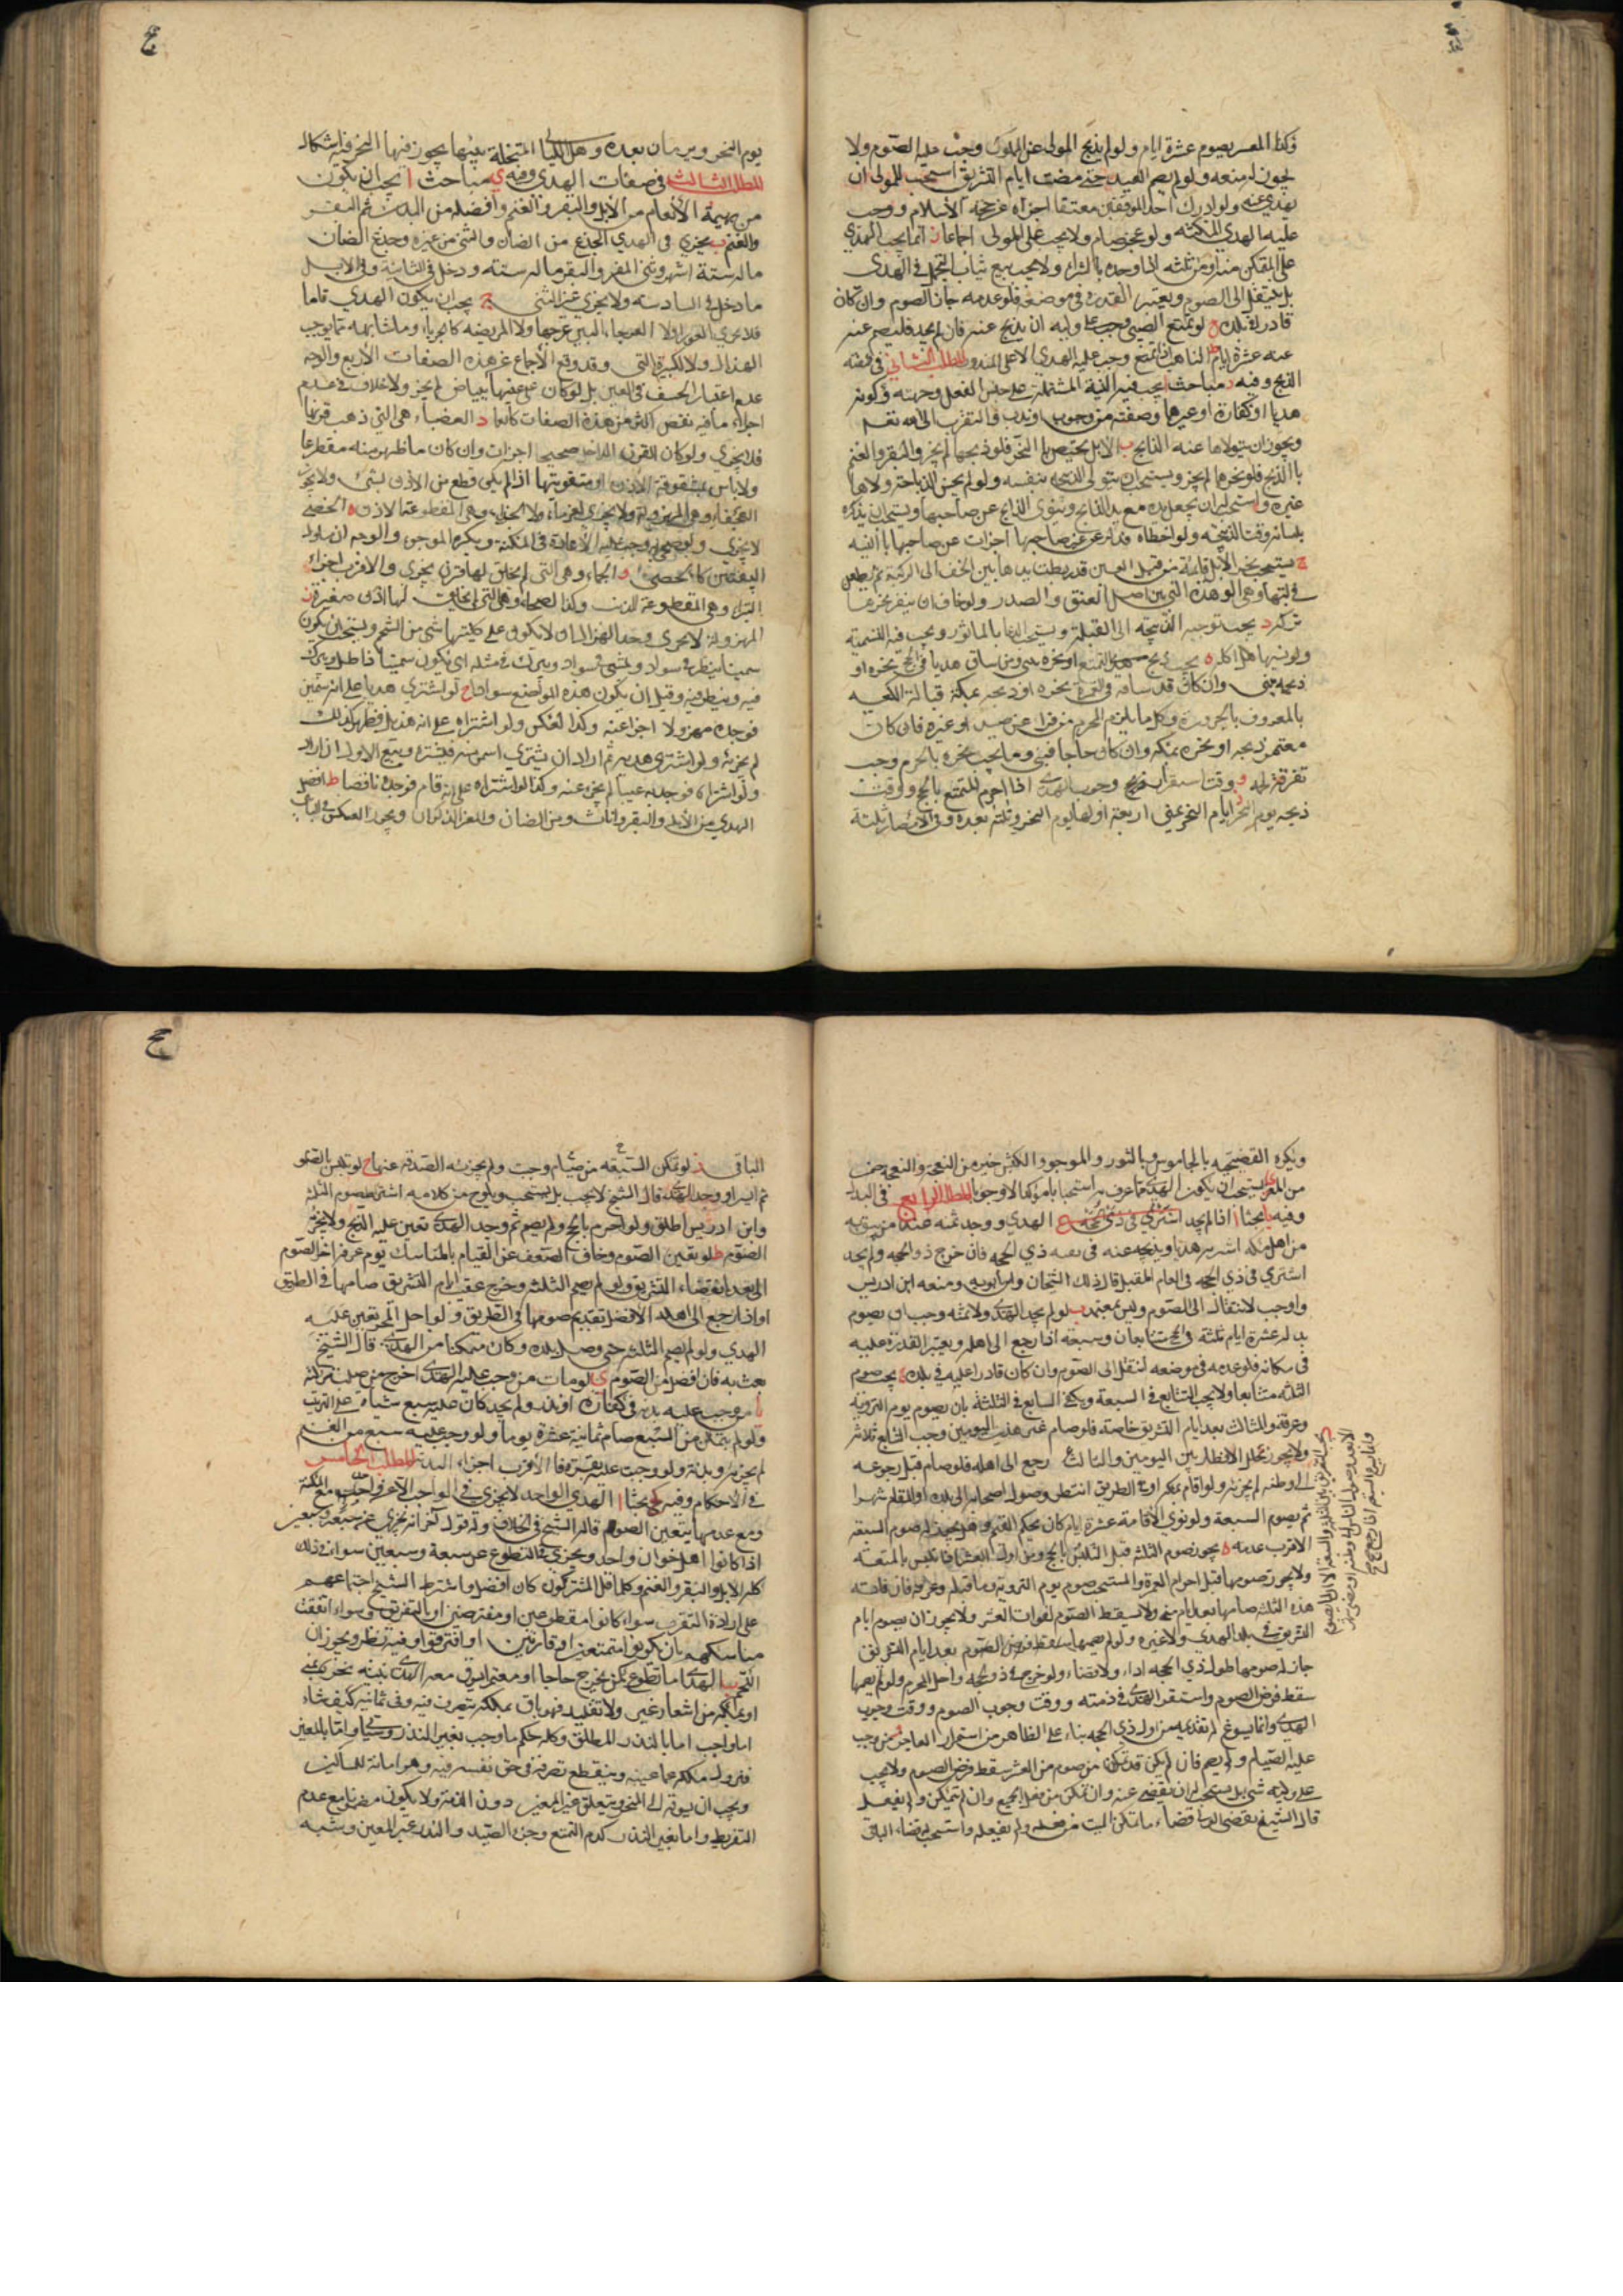 وكذا المعسر يصوم عشرة ايام ولو لم يذبح المولى عن المملوك وجب عليه الصوم ولا
يجوز له منعه ولو لم يصم العبد حتى مضت ايام التشريق استحب للمولى ان
يهدي عنه ولو ادرك احد الموقفين معتقا اجزاه عن حجة الاسلام ووجب
عليه الهدي مع المكنة ولو عجز صام ولا يجب على المولى اجماعا ز انما يجب الهدي
على المتمكن منه او من ثمنه اذا وجده بالشراء ولا يجب بيع ثياب التجمل في الهدي
بل ينتقل الى الصوم ويعتبر القدرة في موضعه فلو عدمه جاز الصوم وان كان
قادرا في بلده ح لو تمتع الصبي وجب على وليه ان يذبح عنه فان لم يجد فليصم عنه
عشرة ايام
الذبح وفيه مباحث ا يجب فيه النية المشتملة على جنس الفعل وجهته وكونه
هديا او كفارة او غيرهما وصفته من وجوب او ندب والتقرب الى الله تعالى
ويجوز ان يتولاها عنه الذابح ب الابل يختص بالنحر فلو ذبحها لم يجز والبقر والغنم
بالذبح فلو نحرهما لم يجز ويستحب ان يتولى الذبح بنفسه ولو لم يحسن الذباحة ولاها
غيره واستحب له ان يجعل يده مع يد الذابح وينوي الذابح عن صاحبها ويستحب ان يذكره
بلسانه وقت الذبح ولو اخطاه فذكر غير صاحبها اجزات عن صاحبها بالنية
ج يستحب نحر الابل قائمة من قبل اليمين قد ربطت يداها بين الخف الى الركبة ثم يطعن
في لبتها وهي الوهدة التي بين اصل العنق والصدر ولو خاف ان ينفر نحرها
باركة د يجب توجيه الذبيحة الى القبلة ويستحب الدعاء بالماثور ويجب فيه التسمية
ولو نسيها حل اكله ه يجب ذبح هدي التمتع او نحره بمنى ومن ساق هديا في الحج نحره او
ذبحه بمنى وان كان قد ساقه في العمرة نحره او ذبحه بمكة قبالة الكعبة
بالمعروف بالحزورة وكل ما يلزم المحرم من فداء عن صيد او غيره فان كان
معتمرا ذبحه او نحره بمكة وان كان حاجا فبمنى وما يجب نحره بالحرم وجب
تفرقة لحمه به و وقت استقرار وجوب الهدي اذا احرم المتمتع بالحج ووقت
ذبحه يوم النحر ز ايام النحر بمنى اربعة اولها يوم النحر وثلثة بعده وفي الامصار ثلثة
يوم النحر ويومان بعده وهل الليالي المتخللة بينها يجوز فيها النحر فيه اشكال
المطلب الثالث في صفات الهدي وفيه ي مباحث ا يجب ان يكون
من بهيمة الانعام من الابل والبقر والغنم وافضله من البدن ثم البقر
والغنم ب يجزي في الهدي الجذع من الضان والثني من غيره وجذع الضان
ما له ستة اشهر وثني المعز والبقر ما له سنة ودخل في الثانية وفي الابل
ما دخل في السادسة ولا يجزي غير الثني ج يجب ان يكون الهدي تاما
فلا يجزي العوراء ولا العرجاء البين عرجها ولا المريضة كالجرباء وما شابهه مما يوجب
الهزال ولا الكبيرة التي وقد وقع الاجماع على هذه الصفات الاربع والوجه
عدم اعتبار الخسف في العين بل لو كان على عينها بياض لم يجز ولا خلاف في عدم
اجزاء ما فيه نقص اكثر من هذه الصفات كالعمياء د العضباء وهي التي ذهب قرنها
فلا يجزي ولو كان القرن الداخل صحيحا اجزات وان كان ما ظهر منه مقطوعا
ولا باس بمشقوقة الاذن او مثقوبتها اذا لم يكن قطع من الاذن شيء ولا يجزي
العجفاء وهي المهزولة ولا يجزي الخرماء ولا الجذاء وهي المقطوعة الاذن ه الخصي
لا يجزي ولو ضحى به وجب عليه الاعادة في المكنة ويكره الموجوء والوجه ان مسلول
البيضتين كالخصي و الجماء وهي التي لم يخلق لها قرن يجزي والاقرب اجزاء
البتراء وهي المقطوعة الذنب وكذا الصمعاء وهي التي لم يخلق لها اذن صغيرة ز
المهزولة لا يجزي وحد الهزال ان لا يكون على كليتها شيء من الشحم ويستحب ان يكون
سمينا ينظر في سواد ويمشي في سواد ويبرك في مثله اي يكون سمينا ذا ظل ويبرك
فيه وينظر فيه وقيل ان يكون هذه المواضع سوادا ح لو اشترى هديا على انه سمين
فوجده مهزولا اجزا عنه وكذا العكس ولو اشتراه على انه هزيل فظهر كذلك
لم يجزئه ولو اشترى هديه ثم اراد ان يشتري اسمن منه فليشتره ويبيع الاول ان اراد
ولو اشتراه فوجد به عيبا لم يجز عنه وكذا لو اشتراه على انه تام فوجده ناقصا ط افضل
الهدي من الابل والبقر الاناث ومن الضان والمعز الذكران ويجوز العكس في البابين
ويكره التضحية بالجاموس وبالثور والموجوء والكبش خير من النعجة والنعجة خير
من المعز ي يستحب ان يكون الهدي مما عرف به استحبابا مؤكدا لا وجوبا المطلب الرابع في البدل
وفيه يا بحثا ا اذا لم يجد الهدي ووجد ثمنه عند من يثق به
من اهل مكة اشترى به هديا ويذبحه عنه في بقية ذي الحجة فان خرج ذو الحجة ولم يجد
اشتري في ذي الحجة في العام المقبل قال ذلك الشيخان وابن بابويه ومنعه ابن ادريس
واوجب الانتقال الى الصوم وليس بمعتمد ب لو لم يجد الهدي ولا ثمنه وجب ان يصوم
بدله عشرة ايام ثلثة في الحج متتابعات وسبعة اذا رجع الى اهله ويعتبر القدرة عليه
في مكانه فلو عدمه في موضعه انتقل الى الصوم وان كان قادرا عليه في بلده ج يجب صوم
الثلثة متتابعا ولا يجب التتابع في السبعة ويكفي التتابع في الثلثة بان يصوم يوم التروية
وعرفة والثالث بعد ايام التشريق خاصة فلو صام غير هذين اليومين وجب التتابع ثلاثة
ولا يجوز تخلل الافطار بين اليومين والثالث رجع الى اهله فلو صام قبل رجوعه
الى وطنه لم يجزئه ولو اقام بمكة او في الطريق انتظر وصول اصحابه الى بلده او اقام شهرا
ثم يصوم السبعة ولو نوى الاقامة عشرة ايام كان بحكم المقيم وهل يجوز له صوم السبعة
الاقرب عدمه ه يجوز صوم الثلثة قبل التلبس بالحج ومن اول العشر اذا تلبس بالمتعة
ولا يجوز صومها قبل احرام العمرة والمستحب صوم يوم التروية وما قبله وعرفة فان فاتته
هذه الثلثة صامها بعد ايام منى ولا يسقط الصوم لفوات العشر ولا يجوز ان يصوم ايام
التشريق في بدل الهدي ولا غيره ولو لم يصمها سقط فرض الصوم بعد ايام التشريق
جاز له صومها طول ذي الحجة اداء ولا قضاء ولو خرج ذو الحجة واهل المحرم ولم يصمها
سقط فرض الصوم واستقر الهدي في ذمته و وقت وجوب الصوم وقت وجوب
الهدي وانما يسوغ له تقديمه من اول ذي الحجة بناء على الظاهر من استمرار العاجز ز من وجب
عليه الصيام ولم يصم فان لم يكن قد تمكن من صوم من العشر سقط فرض الصوم ولا يجب
على وليه شيء بل يستحب له ان يقضي عنه وان تمكن من فعل الجميع وان لم يتمكن ولم يفعل
قال الشيخ يقضي الولي قضاء ما تمكن الميت من فعله ولم يفعله واستحب قضاء الباقي
الباقي لو تمكن السبعة من صيام وجب ولم يجزئه الصدقة عنها ح لو تلبس بالصوم
ثم ايسر او وجد الهدي قال الشيخ لا يجب بل يستحب ويلوح من كلامه اشتراط صوم الثلثة
وابن ادريس اطلق ولو احرم بالحج ولم يصم ثم وجد الهدي تعين عليه الذبح ولا يجزئه
الصوم ط لو تعين الصوم وخاف الضعف عن القيام بالمناسك يوم عرفة اخر الصوم
الى بعد انقضاء التشريق ولو لم يصم الثلثة وخرج عقيب ايام التشريق صامها في الطريق
او اذا رجع الى اهله الافضل تقديم صومها في الطريق ولو اهل المحرم تعين عليه
الهدي ولو لم يصم الثلثة حتى وصل بلده وكان متمكنا من الهدي قال الشيخ
بعث به فان افضل من الصوم ي لو مات من وجب عليه الهدي اخرج من صلب تركته
يا من وجب عليه بدنة في كفارة او نذر ولم يجد كان عليه سبع شياه على الترتيب
ولو لم يتمكن من السبع صام ثمانية عشر يوما ولو وجب عليه سبع من الغنم
لم يجزئه بدنة ولو وجبت عليه بقرة فالاقرب اجزاء البدنة المطلب الخامس
في الاحكام وفيه بحثا ا الهدي الواحد لا يجزي في الواجب الا عن واحد مع المكنة
ومع عدمها يتعين الصوم قاله الشيخ في الخلاف وله قول اخر انه يجزي عن سبعة وسبعين
اذا كانوا اهل خوان واحد ويجزي في التطوع عن سبعة وسبعين سواء في ذلك
كله الابل والبقر والغنم وكلما قل المشتركون كان افضل واشترط الشيخ اجتماعهم
على ارادة التقرب سواء كانوا متطوعين او مفترضين او بالتفريق وسواء اتفقت
مناسكهم بان يكونوا متمتعين او قارنين او افترقوا وفيه نظر ويجوز ان
اللحم ب الهدي اما تطوع كمن يخرج حاجا او معتمرا يسوق معه الهدي بنية نحره بمنى
او بمكة من اشعار غير ولا تقليد فهو باق بملكه يتصرف فيه وفي ثمانية كيف شاء
اما واجب اما بالنذر المطلق وكله حكم ما وجب بغير النذر وسياتي او اما بالمعين
فيزول ملكه عما عينه وينقطع تصرفه في حق نفسه فيه وهو امانة للمساكين
ويجب ان يسوقه الى المنحر ويتعلق غير المعين دون الذمة ولا يكون مضمونا مع عدم
التفريط واما بغير النذر كدم التمتع وجزاء الصيد والنذر غير المعين وشبه